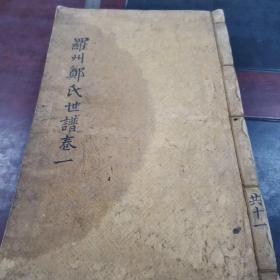 羅州鄭氏世譜卷一
共十一